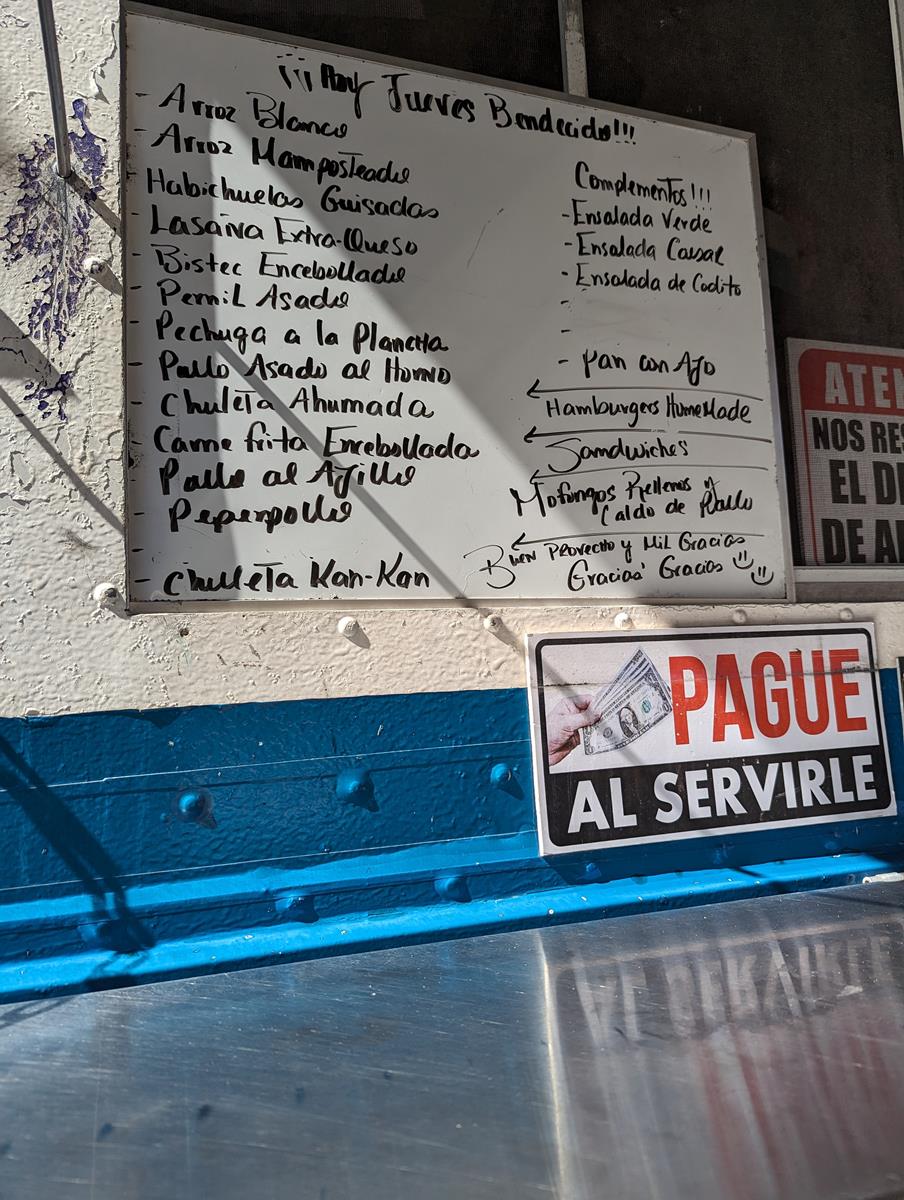 ¡¡¡Hoy Jueves Bendecido!!!
- Arroz Blanco
- Arroz Mamposteado
Habichuelas Guisadas
- Lasaña Extra-Queso
- Bistec Encebollado
- Pernil Asado
- Pechuga a la Plancha
- Pollo Asado al Horno
- Chuleta Ahumada
- Carne frita Encebollada
- Pollo al Ajillo
- Pepperpollo
-
- Chuleta Kan-Kan
Complementos!!!
- Ensalada Verde
- Ensalada Casar
- Ensalada de Codito
-
-
- Pan con Ajo
Hamburgers HomeMade
Sandwiches
Mofongos Rellenos y
Caldo de Pollo
Buen Provecho y Mil Gracias
Gracias Gracias
PAGUE
AL SERVIRLE
NOS
EL
DE